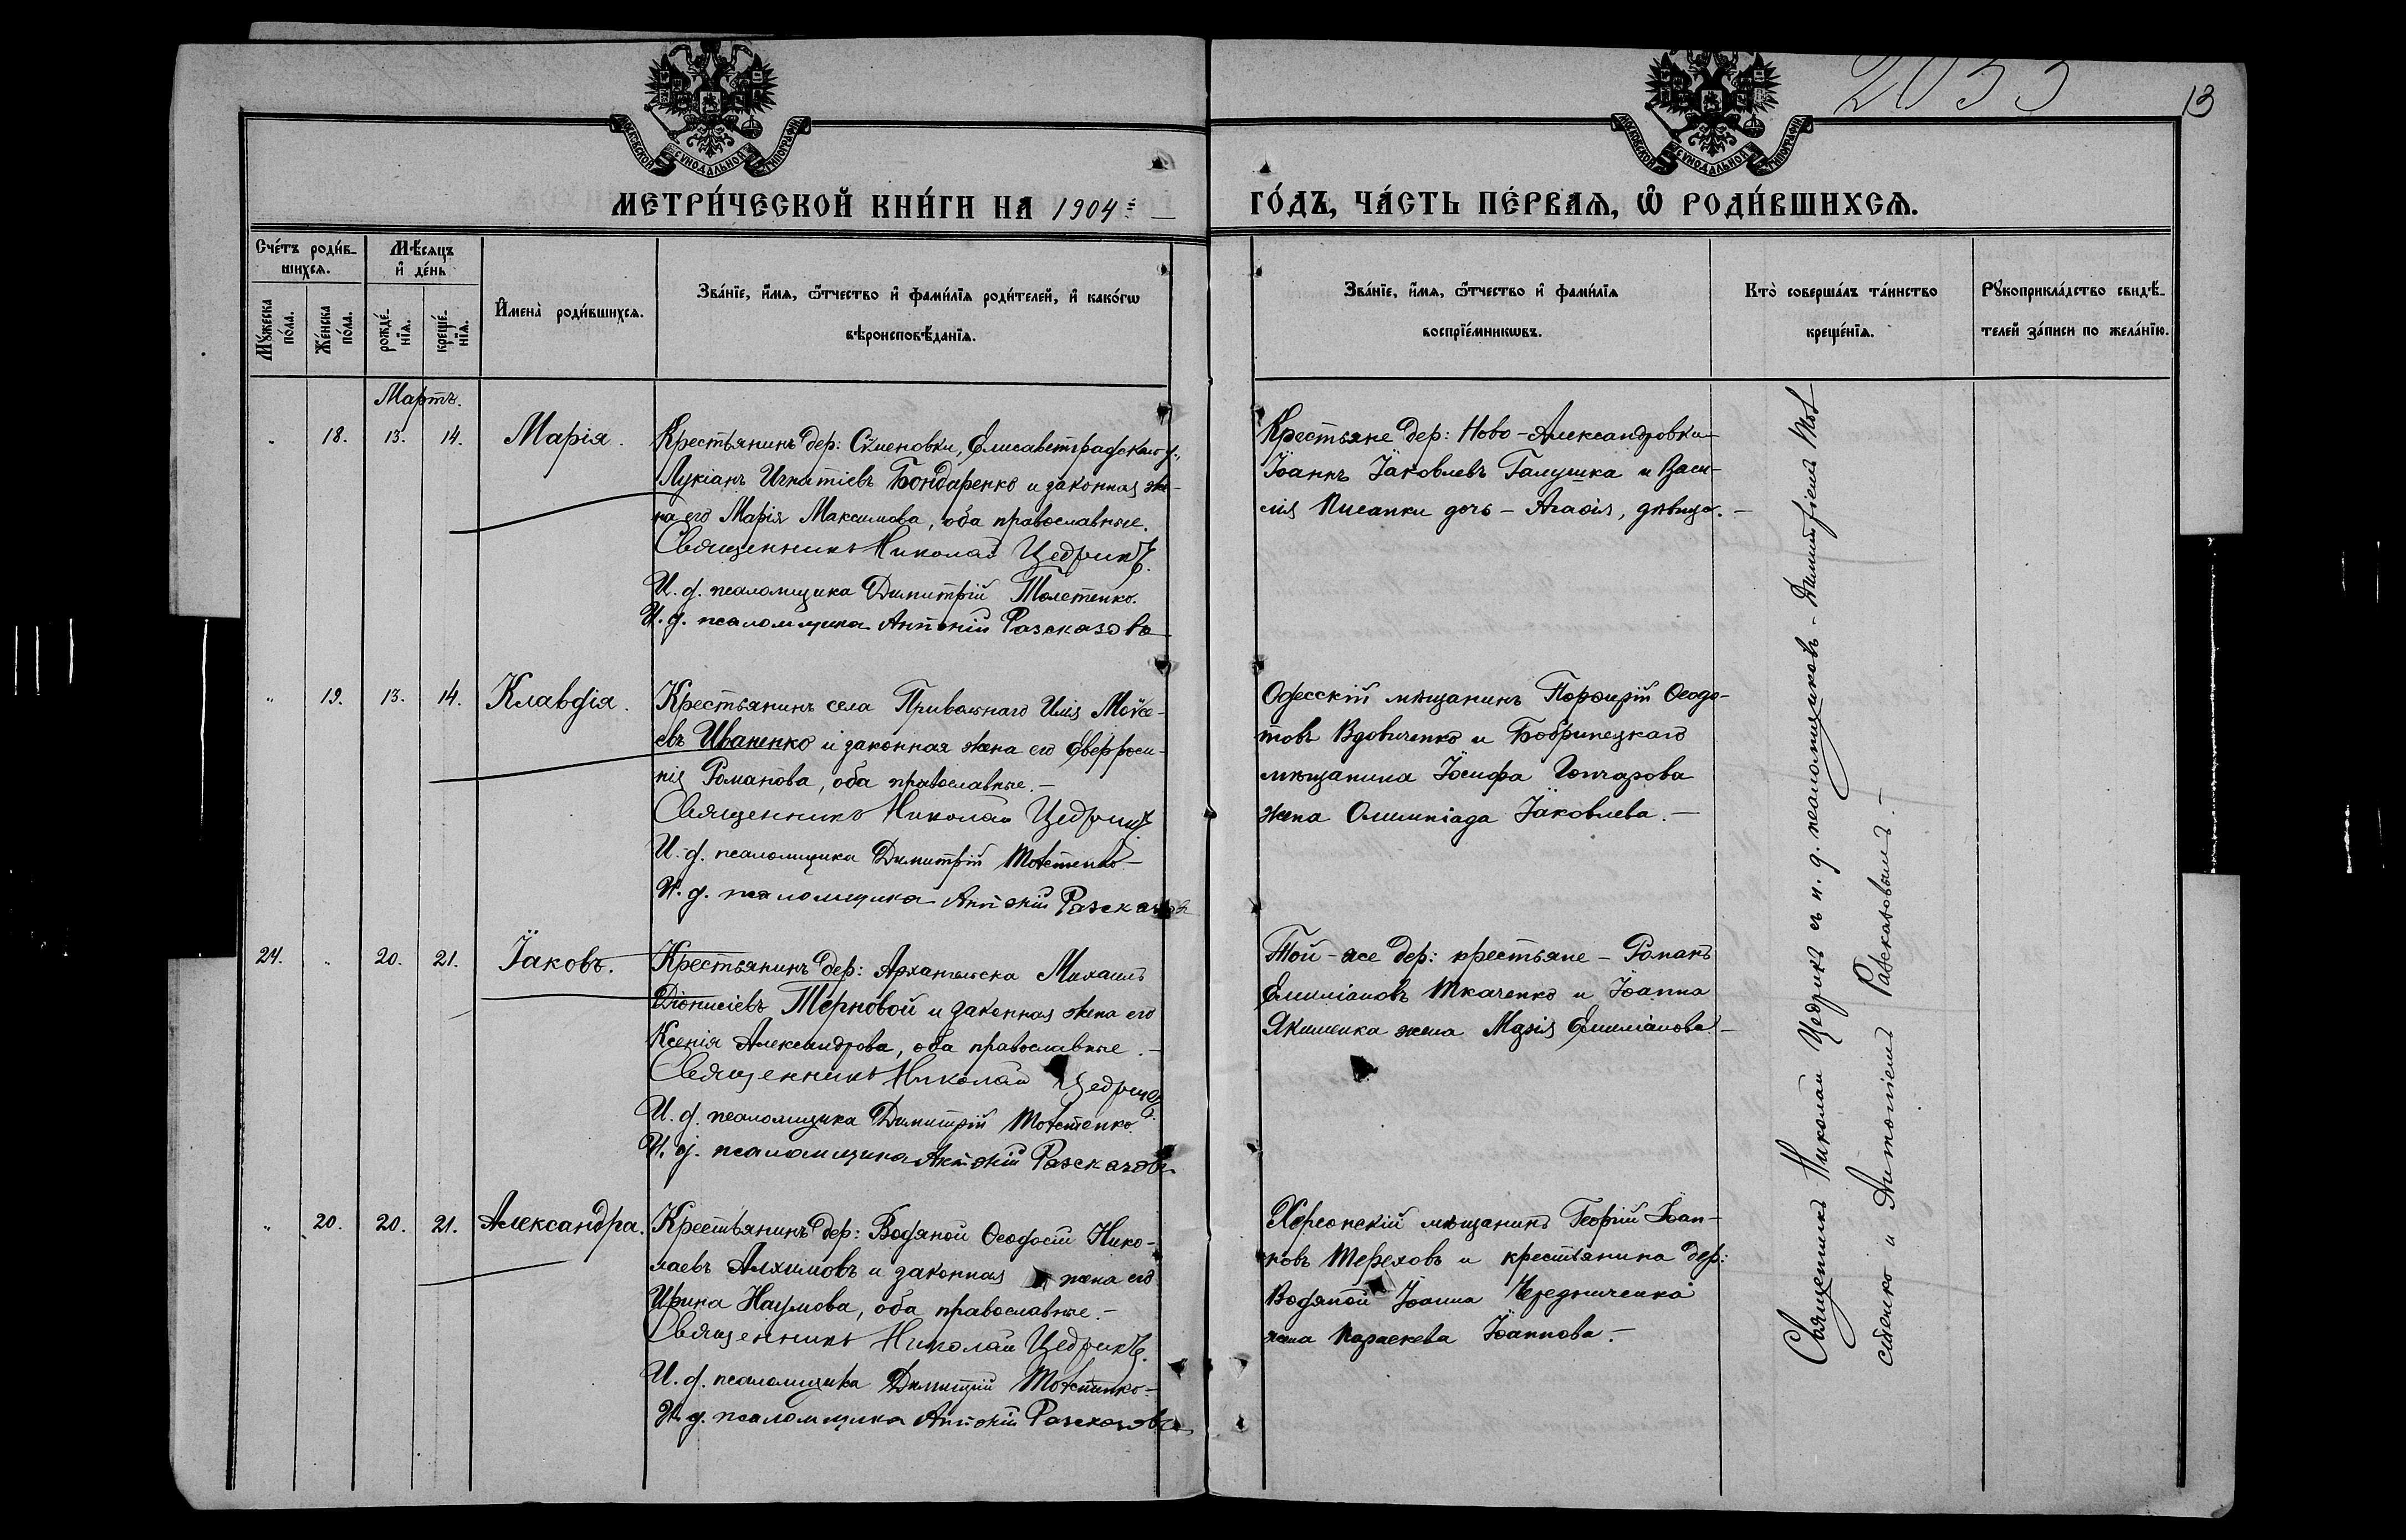 2033
13
МОСКОВСКОЙ СѴНОДАЛЬНОЙ ТИПОГРАФІИ
МОСКОВСКОЙ СѴНОДАЛЬНОЙ ТИПОГРАФІИ
МЕТРИ́ЧЕСКОЙ КНИ́ГИ НА 1904: —
ГО́ДЪ, ЧА́СТЬ ПЕ́РВАѦ, Ѡ҆ РОДИ́ВШИХСѦ.
Сче́тъ роди́в-
шихсѧ.
Мꙋ́жеска по́ла.
Же́нска по́ла.
Мѣ́сѧцъ
и҆ де́нь
рожде́-нїѧ.
креще́-нїѧ.
И҆мена̀ роди́вшихсѧ.
Зва́нїе, и҆́мѧ, ѻ҆́тчество и҆ фами́лїѧ роди́телей, и҆ како́гѡ
вѣроисповѣ́данїѧ.
Зва́нїе, и҆́мѧ, ѻ҆́тчество и҆ фами́лїѧ
воспрїе́мникѡвъ.
Кто̀ соверша́лъ та́инство
креще́нїѧ.
Рꙋкоприкла́дство свидѣ́-
телей за́писи по жела́нїю.
Мартъ.
" 18. 13. 14. Марія.
Крестьянинъ дер: Елисаветградскаго у.,
Лукіанъ Игнатіевъ Бондаренко и законная же-
на его Марія Максимова, оба православные.
Священникъ Николай Цедрикъ.
И. д. псаломщика Димитрій Толстенко.
И. д. псаломщика Антоній Разсказовъ
Крестьяне дер: Ново-Александровки
Іоаннъ Іаковлевъ Галушка и Васи-
лія Писанки дочь – Агафія, дѣвица. –
" 19. 13. 14. Клавдія.
Крестьянинъ села Привольнаго Илія Моѵсе-
евъ Иваненко и законная жена его Евфроси-
нія Романова, оба православные. –
Священникъ Николай Цедрикъ
И. д. псаломщика Димитрій Толстенко –
И. д. псаломщика Антоній Разсказовъ
Одесскій мѣщанинъ Порфирій Ѳеодо-
товъ Вдовиченко и Бобринецкаго
мѣщанина Іосифа Гончарова
жена Олимпіада Іаковлева. –
24. " 20. 21. Іаковъ.
Крестьянинъ дер: Архангельска Михаилъ
Діонисіевъ Терновой и законная жена его
Ксенія Александрова, оба православные. –
Священникъ Николай Цедрикъ.
И. д. псаломщика Димитрій Толстенко
И. д. псаломщика Антоній Разсказовъ
Той-же дер: крестьяне – Романъ
Емиліановъ Ткаченко и Іоанна
Якименка жена Марія Емиліанова –
" 20. 20. 21. Александра.
Крестьянинъ дер: Водяной Ѳеодосій Нико-
лаевъ Алхимовъ и законная жена его
Ирина Наумова, оба православные. –
Священникъ Николай Цедрикъ.
И. д. псаломщика Димитрій Толстенко. –
И. д. псаломщика Антоній Разсказовъ
Херсонскій мѣщанинъ Георгій Іоан-
новъ Тереховъ и крестьянина дер:
Водяной Іоанна Чередниченка
жена Параскева Іоаннова. –
Священникъ Николай Цедрикъ съ и. д. псаломщиковъ – Димитріемъ Тол-
стенко и Антоніемъ Разсказовымъ. –